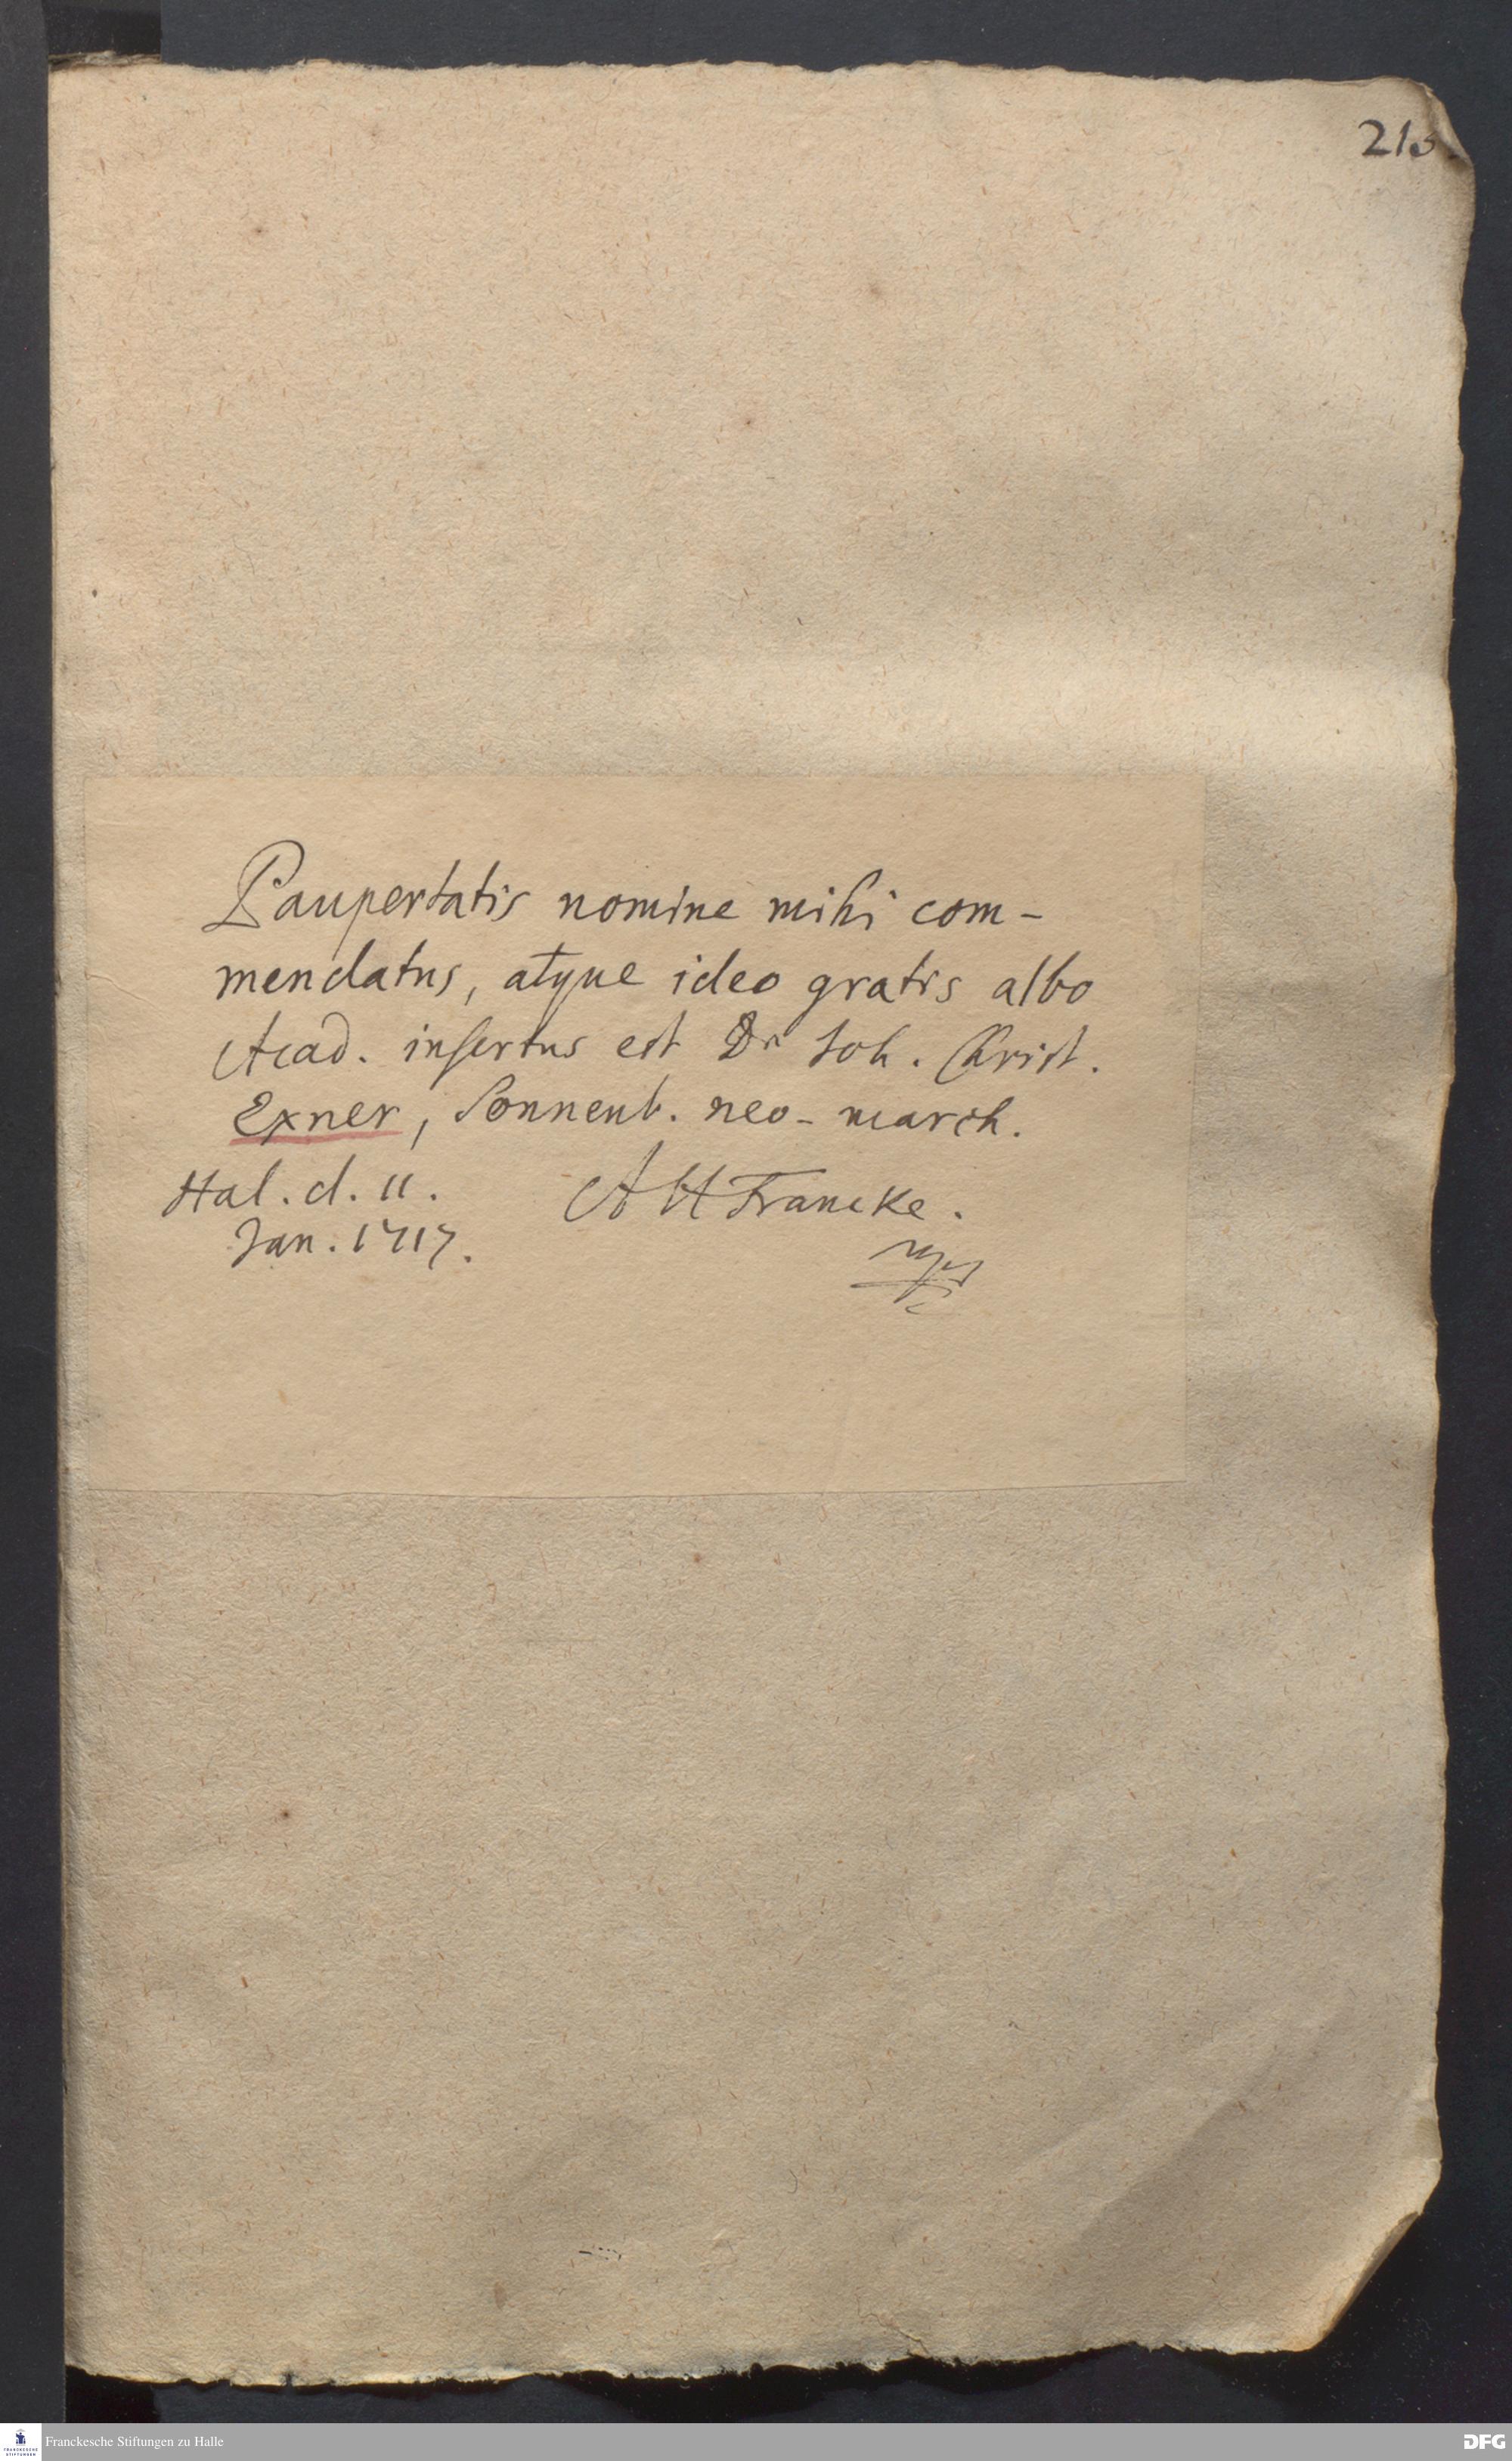 213.
Paupertatis nomine mihi com-
mendatus, atque ideo gratis albo
Acad. insertus est Dn Joh. Christ.
Exner, Sonnenb. neo-march.
Hal. d. 11. AHFrancke.
Jan. 1717.
FRANCKESCHE STIFTUNGEN
Franckesche Stiftungen zu Halle
DFG